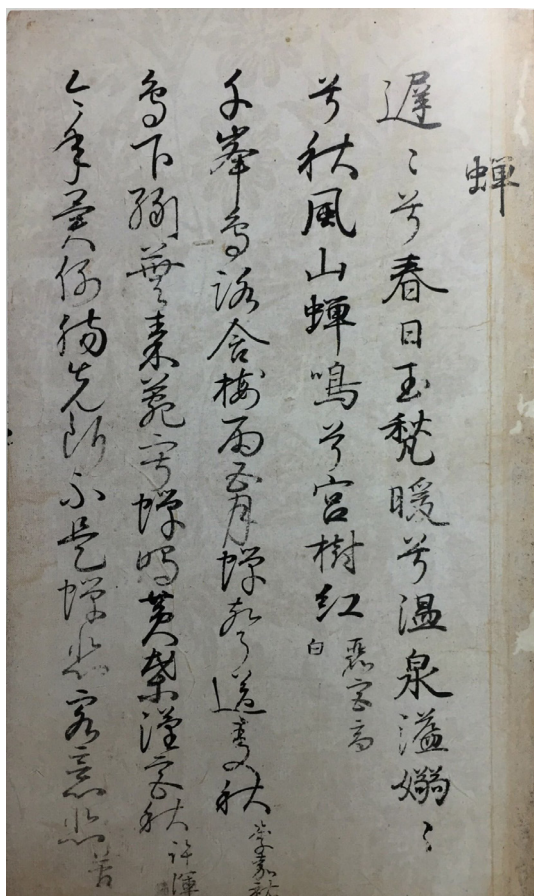 蝉
遲〻兮春日玉甃暖兮温泉溢嫋〻
兮秋風山蝉鳴兮宮樹紅 驪宮高
白
千峯鳥路含梅雨五月蝉聲送麦秋 李嘉祐
鳥下緑蕪秦苑寂蝉鳴黄葉漢宮秋 許渾
今年異例腸先断不是蝉悲客意悲 菅